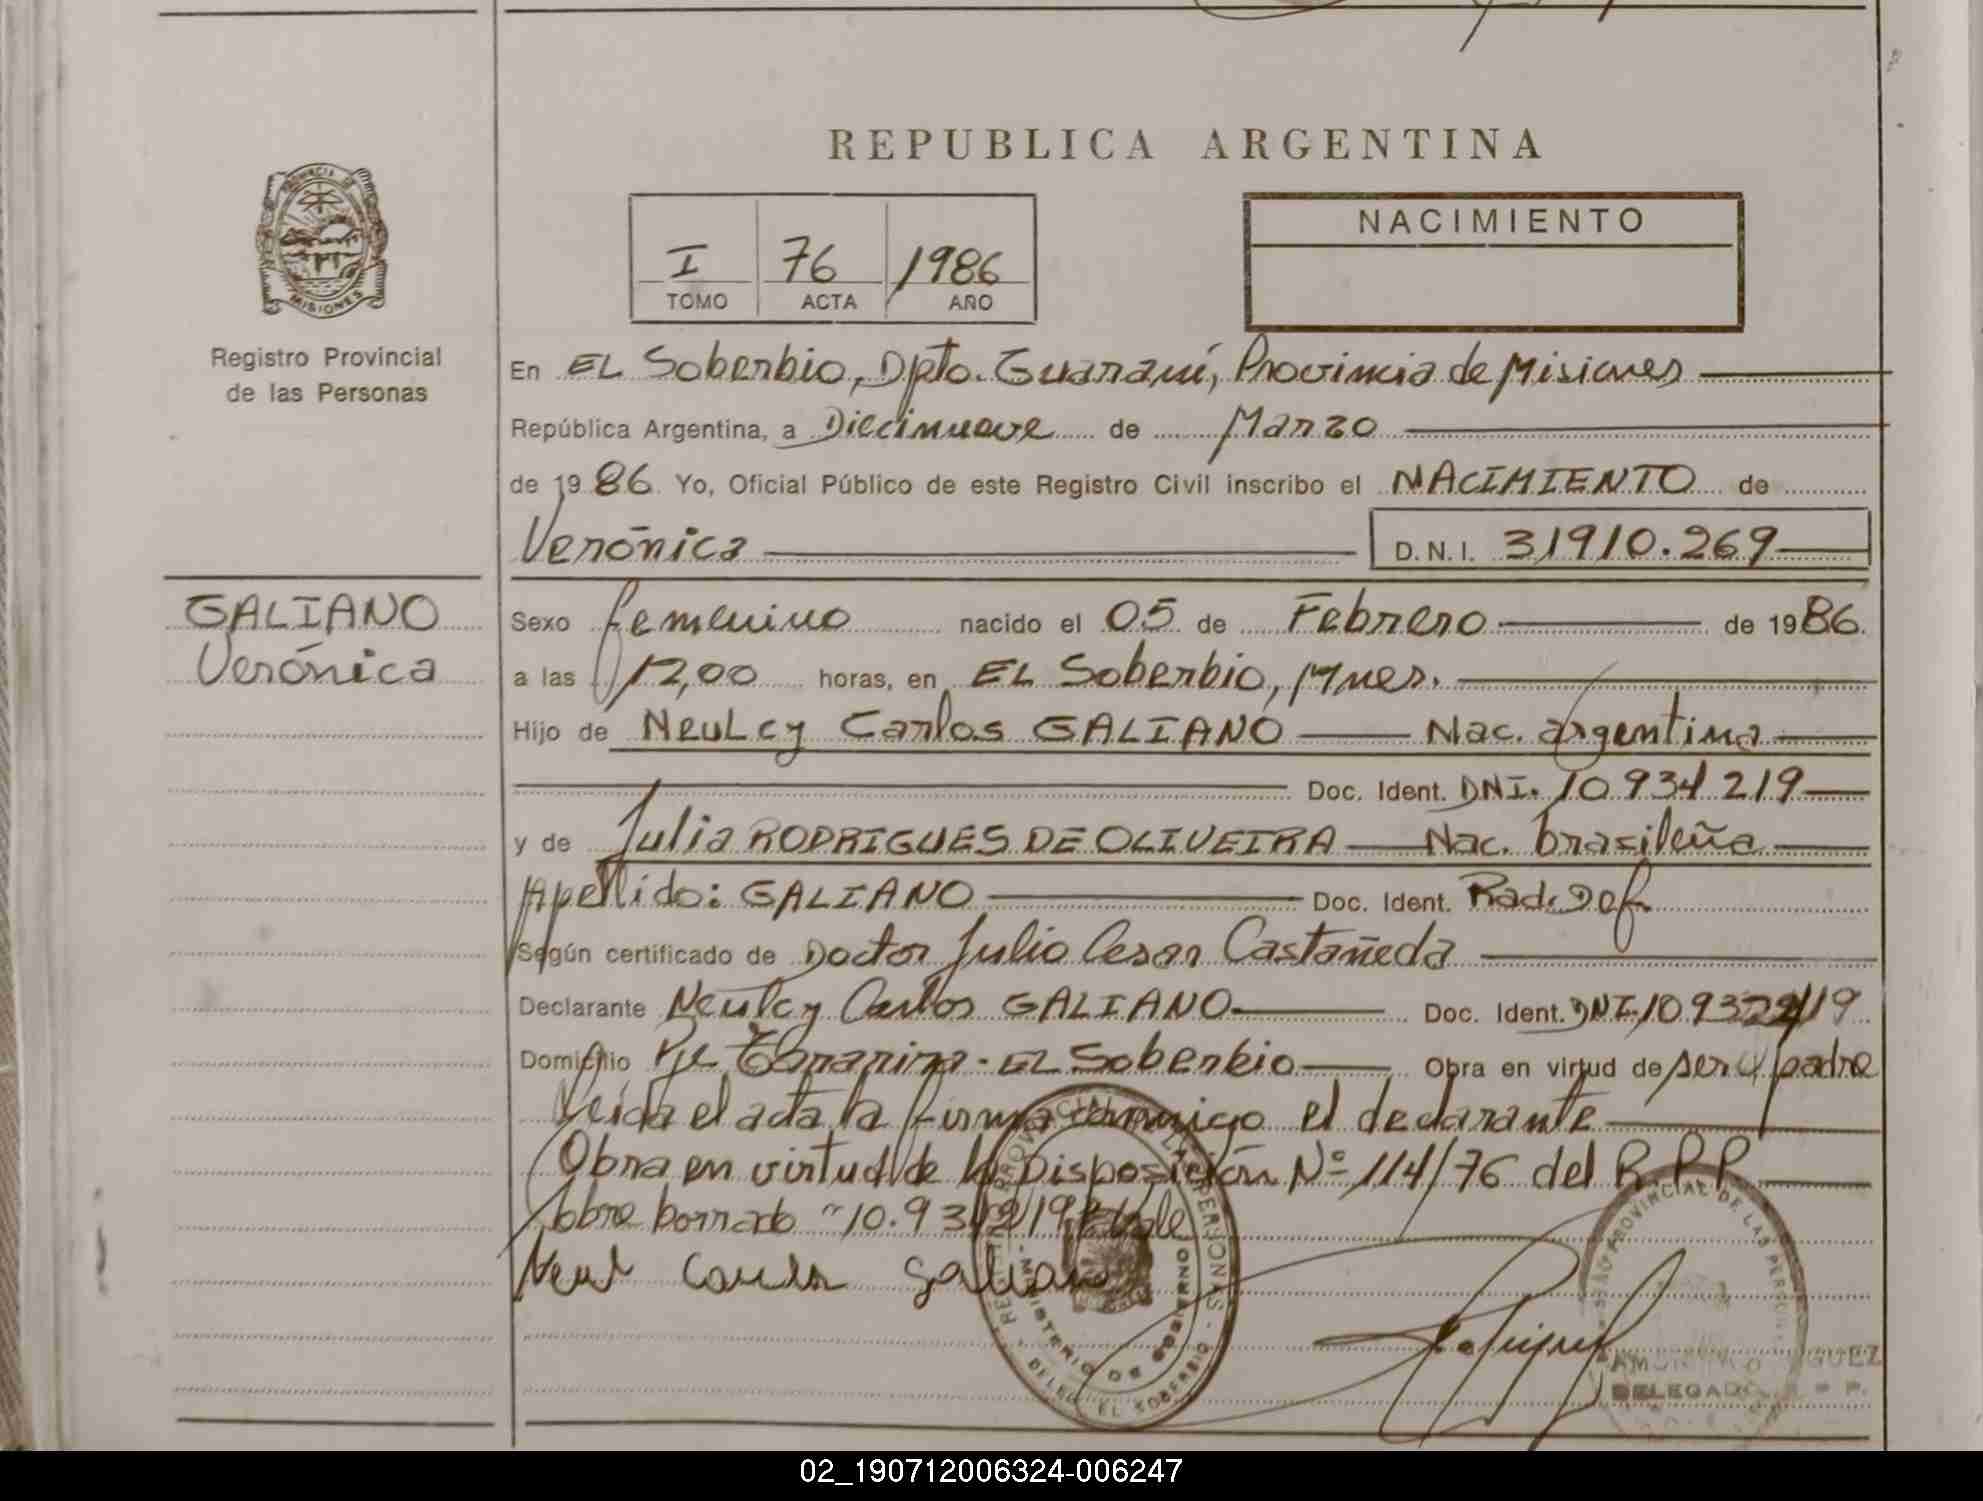 REPUBLICA ARGENTINA
PROVINCIA DE
MISIONES
Registro Provincial
de las Personas
I 76 1986
TOMO ACTA AÑO
NACIMIENTO
En EL Soberbio, Dpto. Guaraní, Provincia de Misiones
República Argentina, a Diecinueve de Marzo
de 1986. Yo, Oficial Público de este Registro Civil inscribo el NACIMIENTO de
Verónica D.N.I. 31910.269
GALIANO
Verónica
Sexo femenino nacido el 05 de Febrero de 1986.
a las 12,00 horas, en EL Soberbio, Mnes.
Hijo de Neulcy Carlos GALIANO Nac. argentina
Doc. Ident. DNI. 10 934 219
y de Julia RODRIGUES DE OLIVEIRA Nac. brasileña
Apellido: GALIANO Doc. Ident. Rad. Def.
Según certificado de Doctor Julio Cesar Castañeda
Declarante Neulcy Carlos GALIANO Doc. Ident. DNI
Domicilio Pje - EL Soberbio Obra en virtud de ser padre
Leida el acta la firma conmigo el declarante
Obra en virtud de la Disposición Nº 114/76 del R.P.P.
Sobre borrado Vale
Carlos Galiano
REGISTRO PROVINCIAL DE LAS PERSONAS
MINISTERIO DE GOBIERNO
DELEG. EL SOBERBIO
PROVINCIAL DE LAS
DELEGADO
02_190712006324-006247